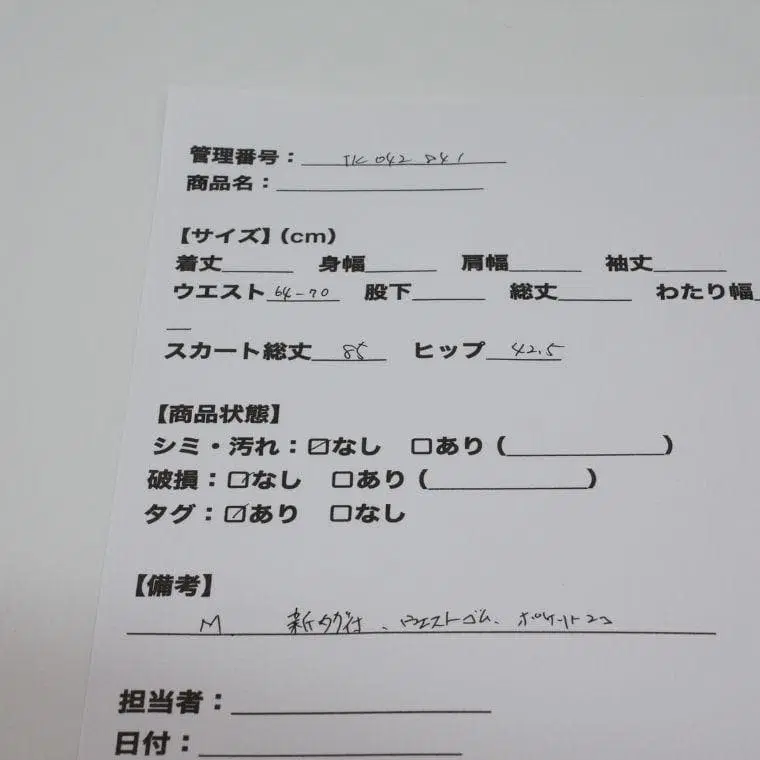 管理番号：TK042841
商品名：
【サイズ】(cm)
着丈 身幅 肩幅 袖丈
ウエスト 64-70 股下 総丈 わたり幅
スカート総丈 85 ヒップ 42.5
【商品状態】
シミ・汚れ：☑なし □あり（ ）
破損：☑なし □あり（ ）
タグ：☑あり □なし
【備考】
M 新タグ付、ウエストゴム、ポケット2コ
担当者：
日付：